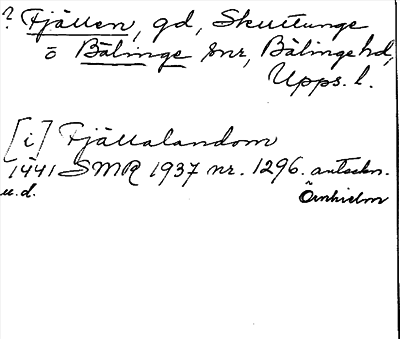 ? Fjällen, gd, Skuttunge
o Bälinge snr, Bälinge hd,
Upps. l.
[i] Fjällalandom
1441 SMR 1937 nr. 1296. anteckn.
u.d. Örnhielm